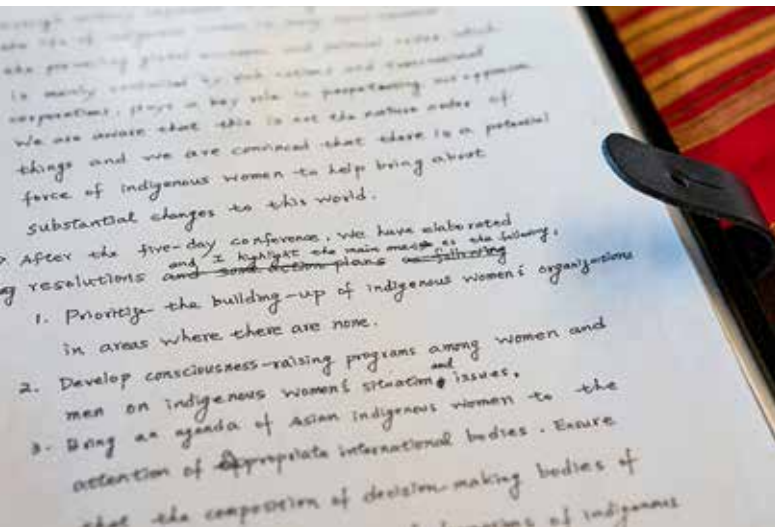 the life of indigenous women in
the prevailing global economic and political order, which
is mainly controlled by rich nations and transnational
corporations, plays a key role in perpetuating our oppression.
We are aware that this is not the nature order of
things and we are convinced that there is a potential
force of indigenous women to help bring about
substantial changes to this world.
After the five-day conference, we have elaborated
and I highlight the main ones as the following.
resolutions and some action plans as following
1. Prioritize the building-up of indigenous women's organizations
in areas where there are none.
2. Develop consciousness-raising programs among women and
men on indigenous women's situation and issues.
3. Bring an agenda of Asian indigenous women to the
attention of appropriate international bodies. Ensure
that the composition of decision-making bodies of
of indigenous